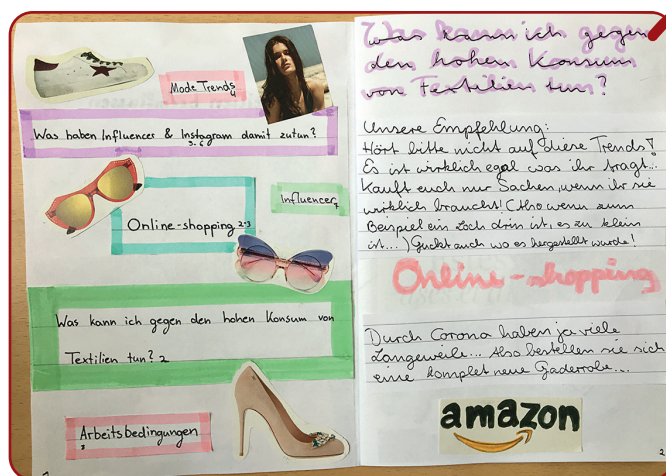 Mode Trends
4
Was haben Influencer & Instagram damit zutun?
5.6
Influencer
7
Online-shopping 2-3
Was kann ich gegen den hohen Konsum von
Textilien tun? 2
Arbeitsbedingungen
3
1
Was kann ich gegen
den hohen Konsum
von Textilien tun?
Unsere Empfehlung:
Hört bitte nicht auf diese Trends!
Es ist wirklich egal was ihr tragt...
Kauft euch nur Sachen, wenn ihr sie
wirklich braucht! (Also wenn zum
Beispiel ein Loch drin ist, es zu klein
ist...) Guckt auch wo es hergestellt wurde!
Online-shopping
Durch Corona haben ja viele
Langeweile... Also bestellen sie sich
eine komplet neue Gaderrobe...
amazon
2